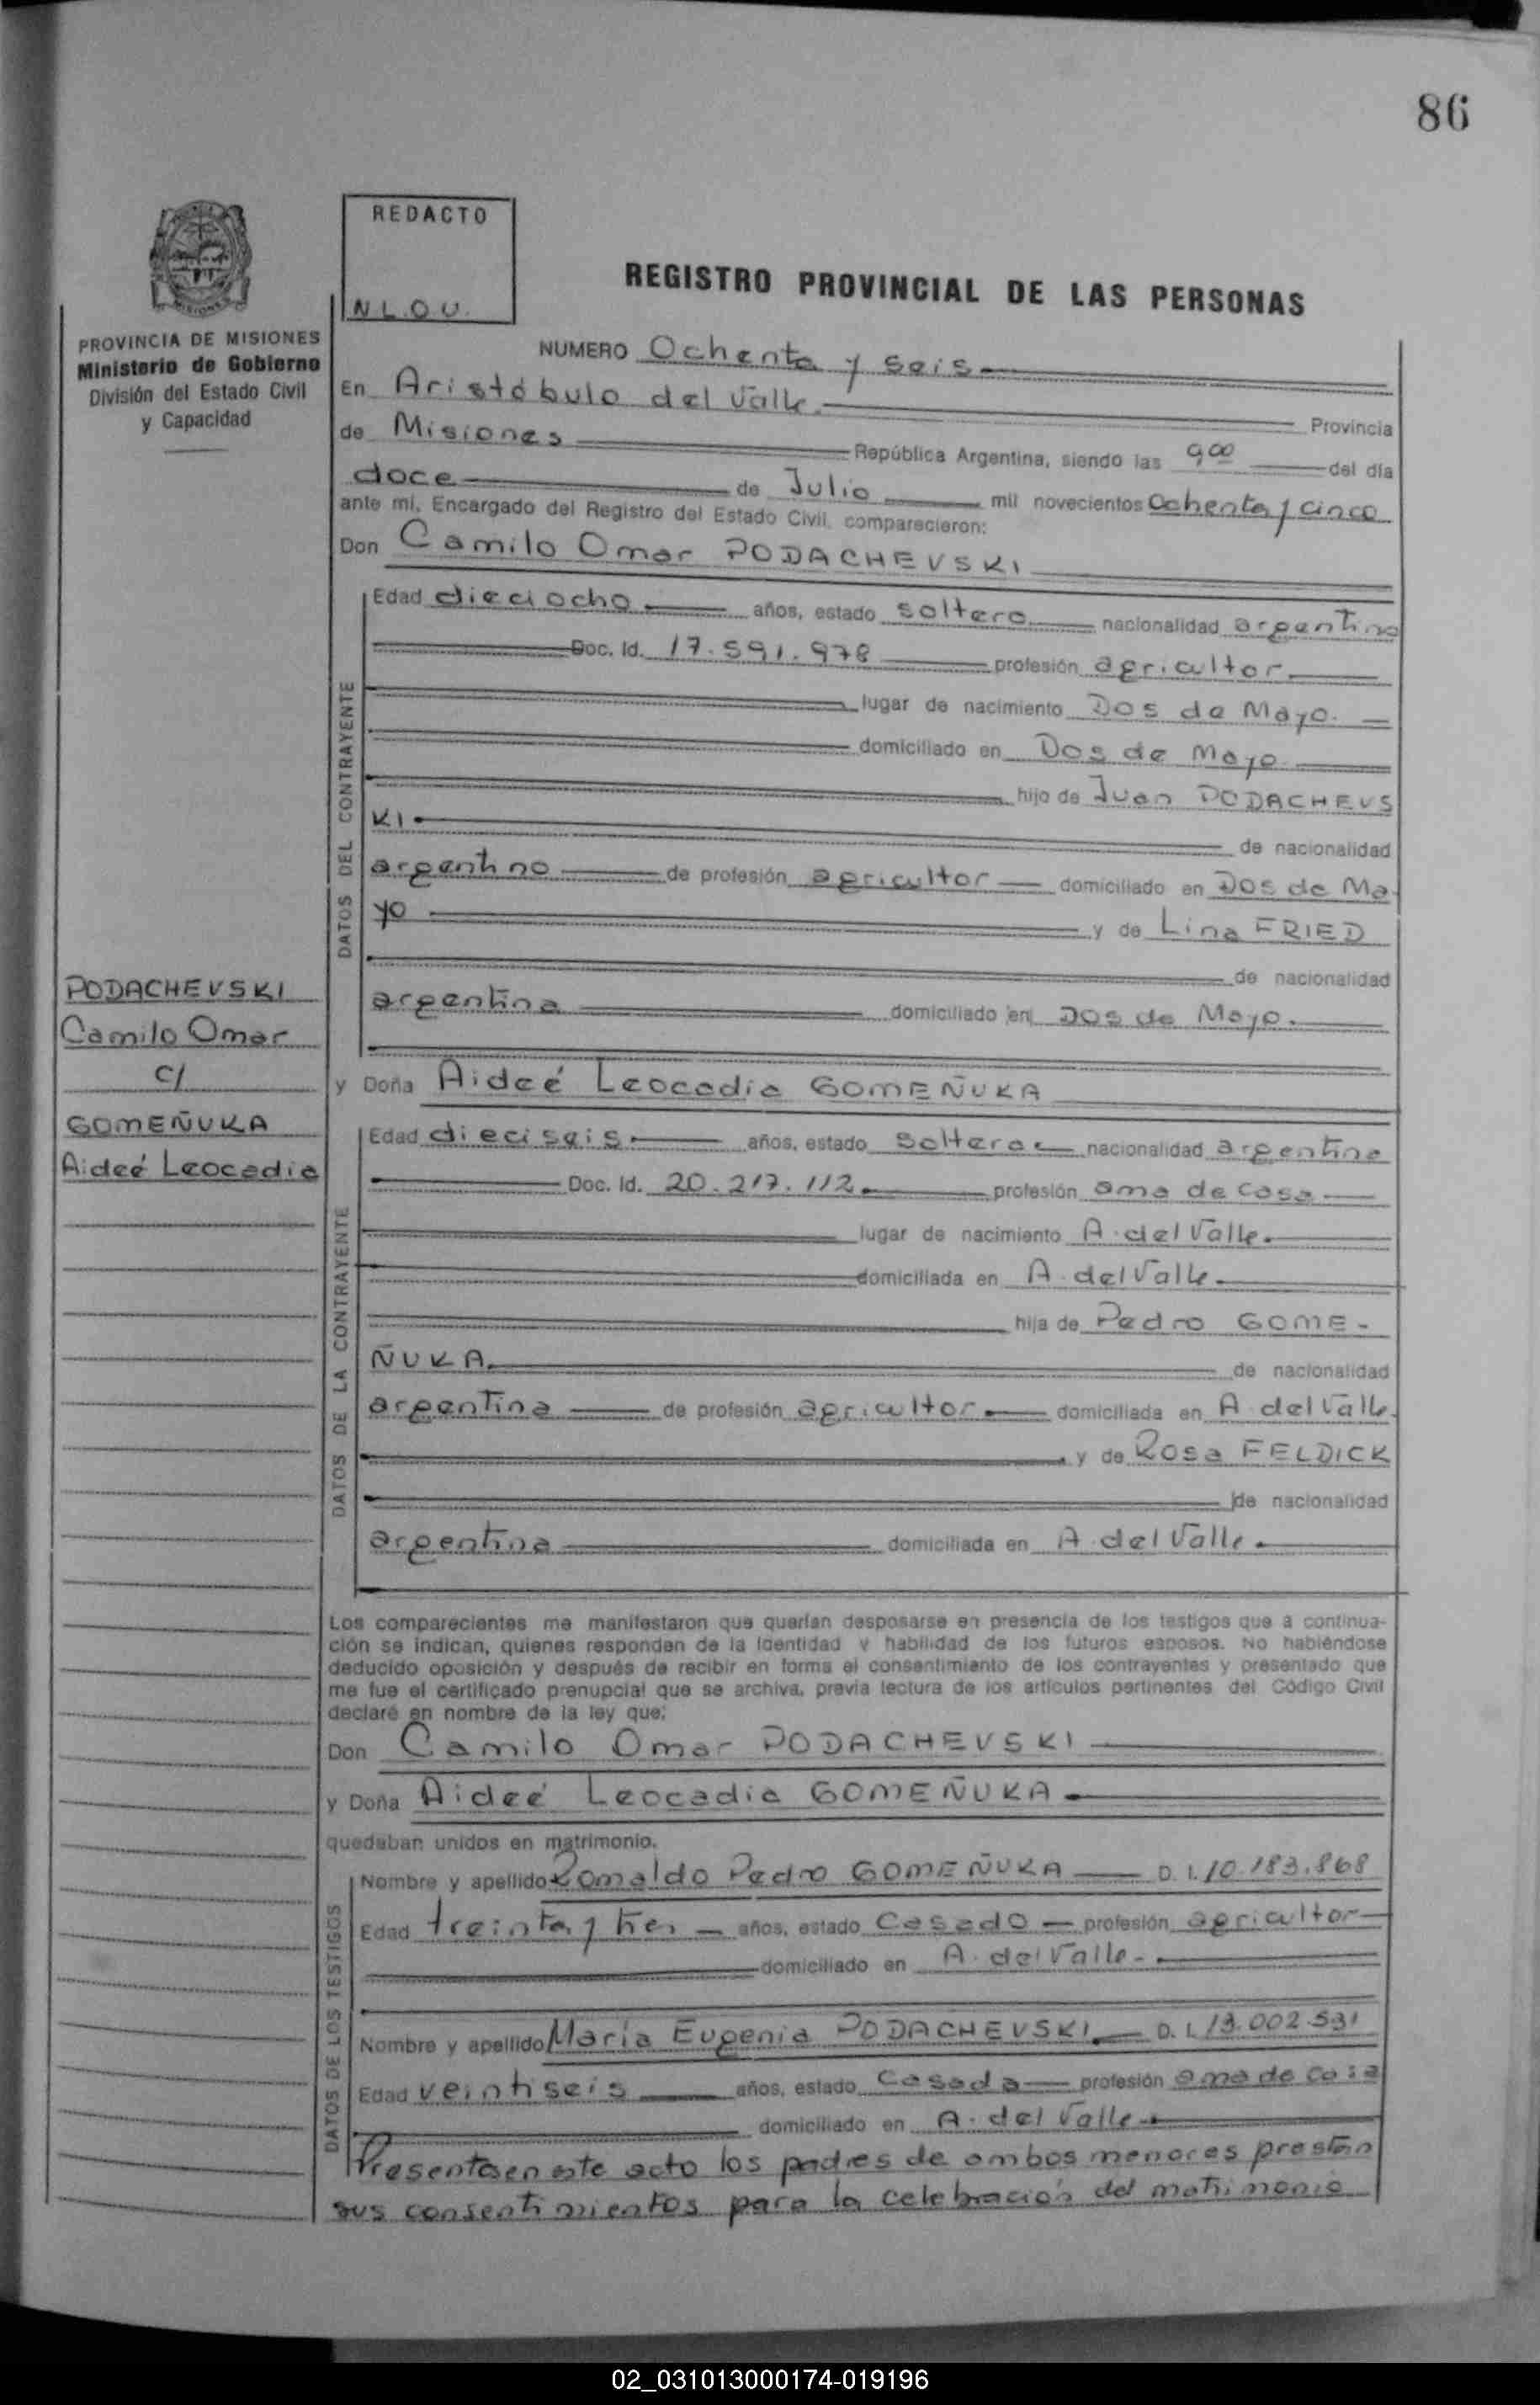 86
REDACTO
N.L.O.U.
PROVINCIA DE MISIONES
Ministerio de Gobierno
División del Estado Civil
y Capacidad
REGISTRO PROVINCIAL DE LAS PERSONAS
NUMERO Ochenta y seis
En Aristóbulo del Valle. Provincia
de Misiones República Argentina, siendo las 9 00 del día
doce de Julio mil novecientos Ochenta y cinco
ante mi, Encargado del Registro del Estado Civil, comparecieron:
Don Camilo Omar PODACHEVSKI
DATOS DEL CONTRAYENTE
Edad dieciocho años, estado soltero nacionalidad argentino
Doc. Id. 17.591.978 profesión agricultor
lugar de nacimiento Dos de Mayo.
domiciliado en Dos de Mayo
hijo de Juan PODACHEVS
KI de nacionalidad
argentino de profesión agricultor domiciliado en Dos de Ma
yo y de Lina FRIED
de nacionalidad
argentina domiciliado en Dos de Mayo.
PODACHEVSKI
Camilo Omar
C/
GOMEÑUKA
Aideé Leocadia
y Doña Aideé Leocadia GOMEÑUKA
DATOS DE LA CONTRAYENTE
Edad dieciseis años, estado soltera nacionalidad argentina
Doc. Id. 20.217.112 profesión ama de casa
lugar de nacimiento A. del Valle.
domiciliada en A. del Valle.
hija de Pedro GOME-
ÑUKA. de nacionalidad
argentina de profesión agricultor domiciliada en A. del Valle.
y de Rosa FELDICK
de nacionalidad
argentina domiciliada en A. del Valle.
Los comparecientes me manifestaron que querían desposarse en presencia de los testigos que a continua-
ción se indican, quienes responden de la identidad y habilidad de los futuros esposos. No habiéndose
deducido oposición y después de recibir en forma el consentimiento de los contrayentes y presentado que
me fue el certificado prenupcial que se archiva, previa lectura de los artículos pertinentes del Código Civil
declaré en nombre de la ley que:
Don Camilo Omar PODACHEVSKI
y Doña Aideé Leocadia GOMEÑUKA
quedaban unidos en matrimonio.
DATOS DE LOS TESTIGOS
Nombre y apellido Romaldo Pedro GOMEÑUKA D. I. 10.183.868
Edad treinta y tres años, estado Casado profesión agricultor
domiciliado en A. del Valle.
Nombre y apellido María Eugenia PODACHEVSKI D. I. 13.002.531
Edad veintiseis años, estado Casada profesión ama de casa
domiciliado en A. del Valle
Presentes en este acto los padres de ambos menores prestan
sus consentimientos para la celebración del matrimonio
02_031013000174-019196